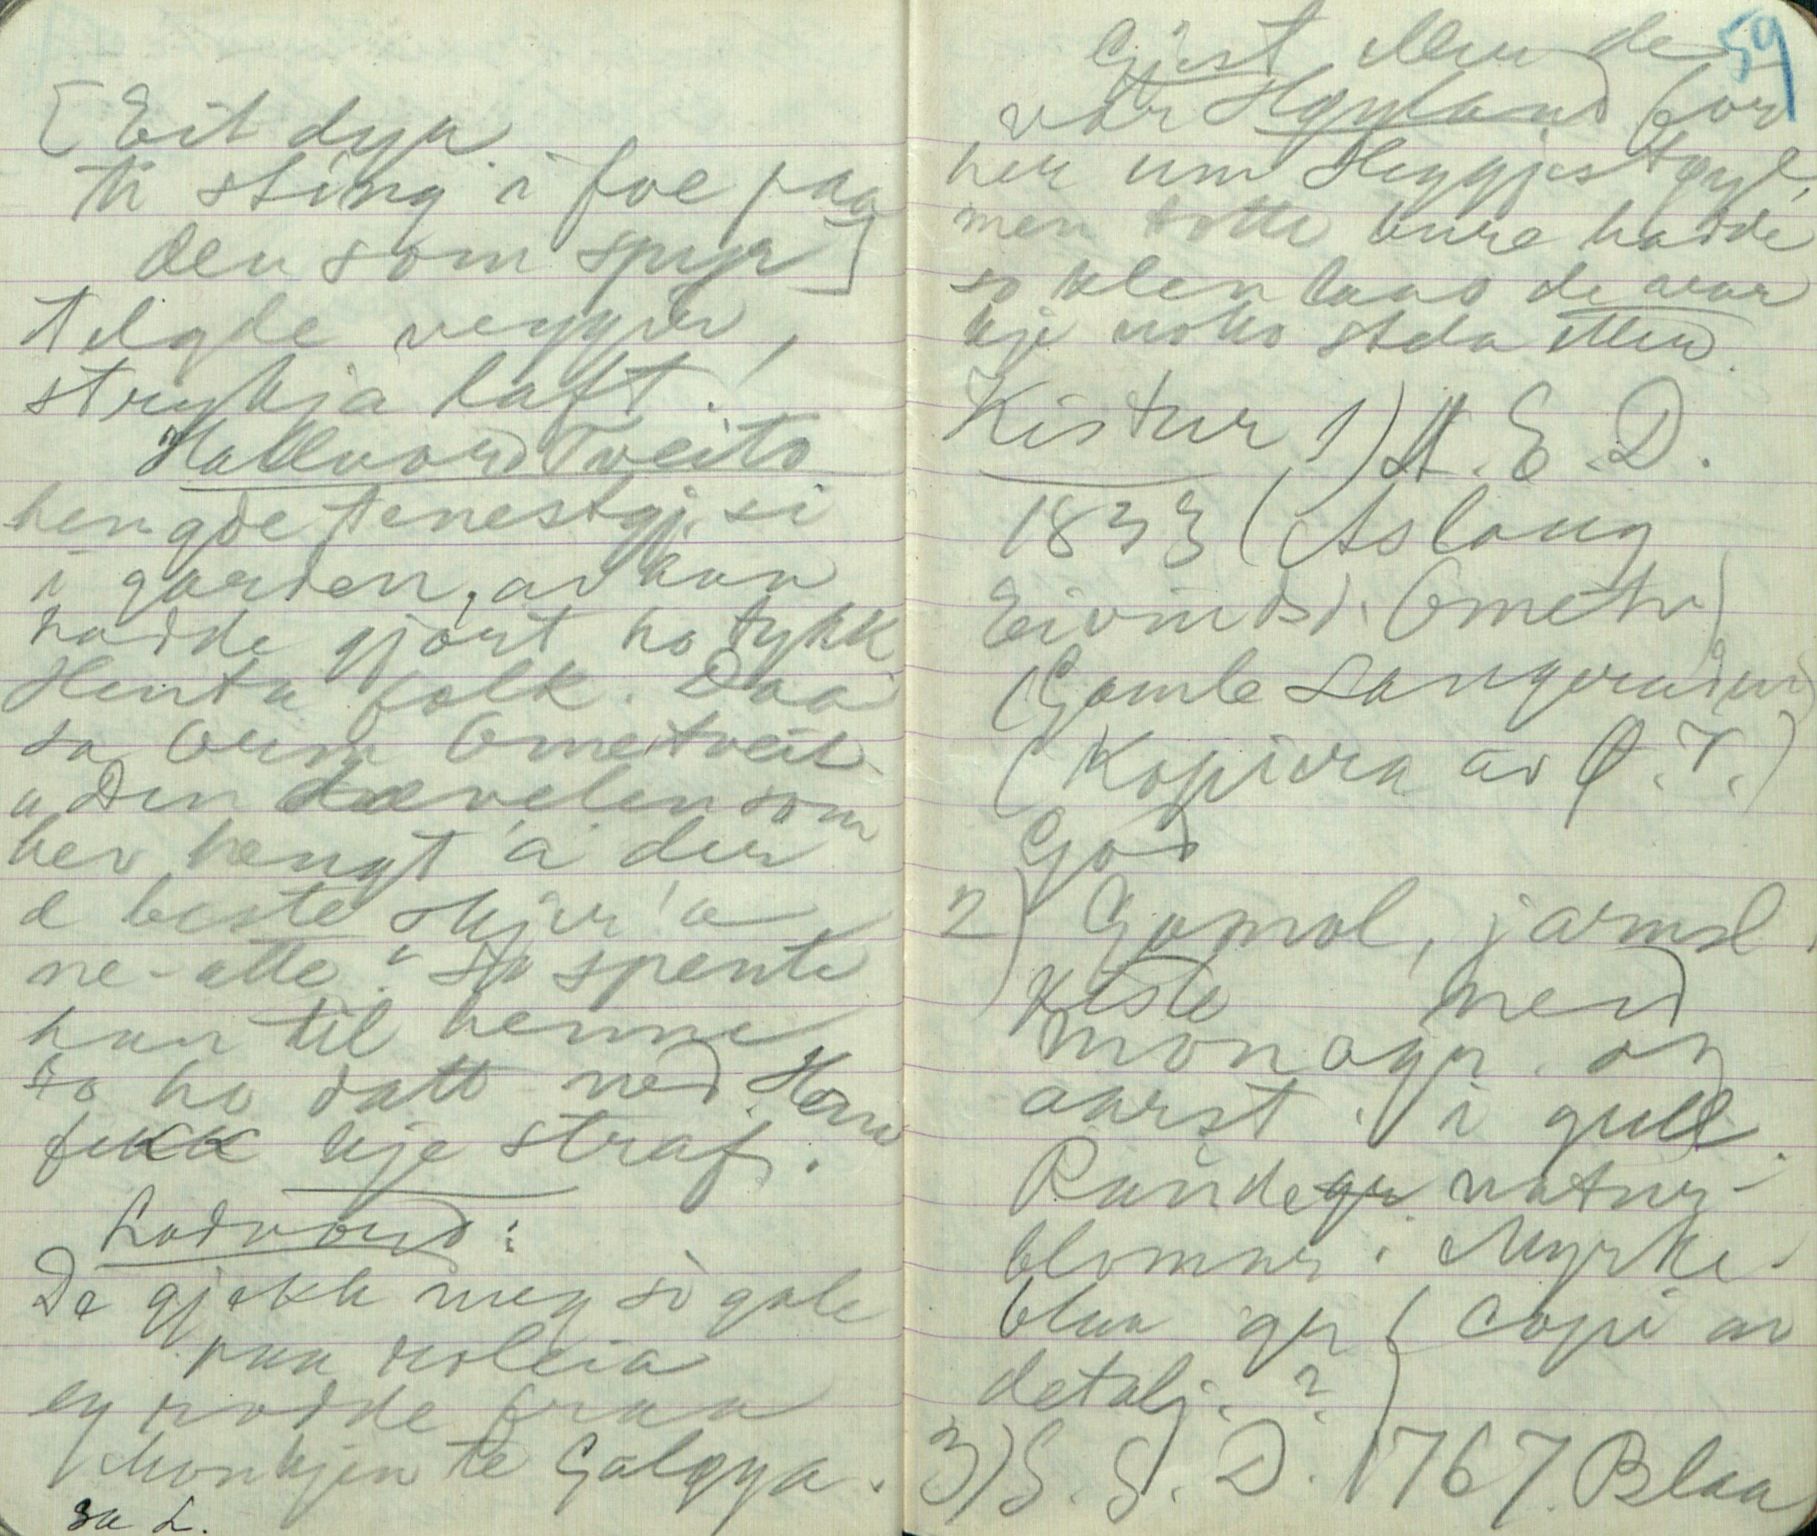 [Eit dyr
ti sting i foe paa
den som spyr]
telgde veggjer,
strykja laft.
Hallvord Tveito
hengde tenestgj. si
i garden, av han
hadde gjort ho tykk
Henta folk. Daa
sa Orm Ometveit
a Den dævelen som
hev hengt 'a der
d beste skjer 'a
ne-atte." So spente
han til henne
so ho datt ned. Han
fekk kje straf.
Lodvord:
De gjekk meg so gale
paa roleia
eg rodde fraa
te Galgya.
sa L.
59
Gjest Mun de
var Høyland for
her um Heggjestøyl,
men totte bure hadde
so klen laas de var
kje noko stela
Kistur 1) A. E. D.
1833 (Aslaug
Eivindsd. Ometv)
(Gamle Langeraden)
(Kopiera av Ø. V.)
God
2) Gomol, jarnsl.
kiste med
monogr. og
aarst. i gull.
Raudegr. natur-
blomur. Myrke-
blaa gr (copi av
detalj. ?)
3) S. S. D. 1767. Blaa